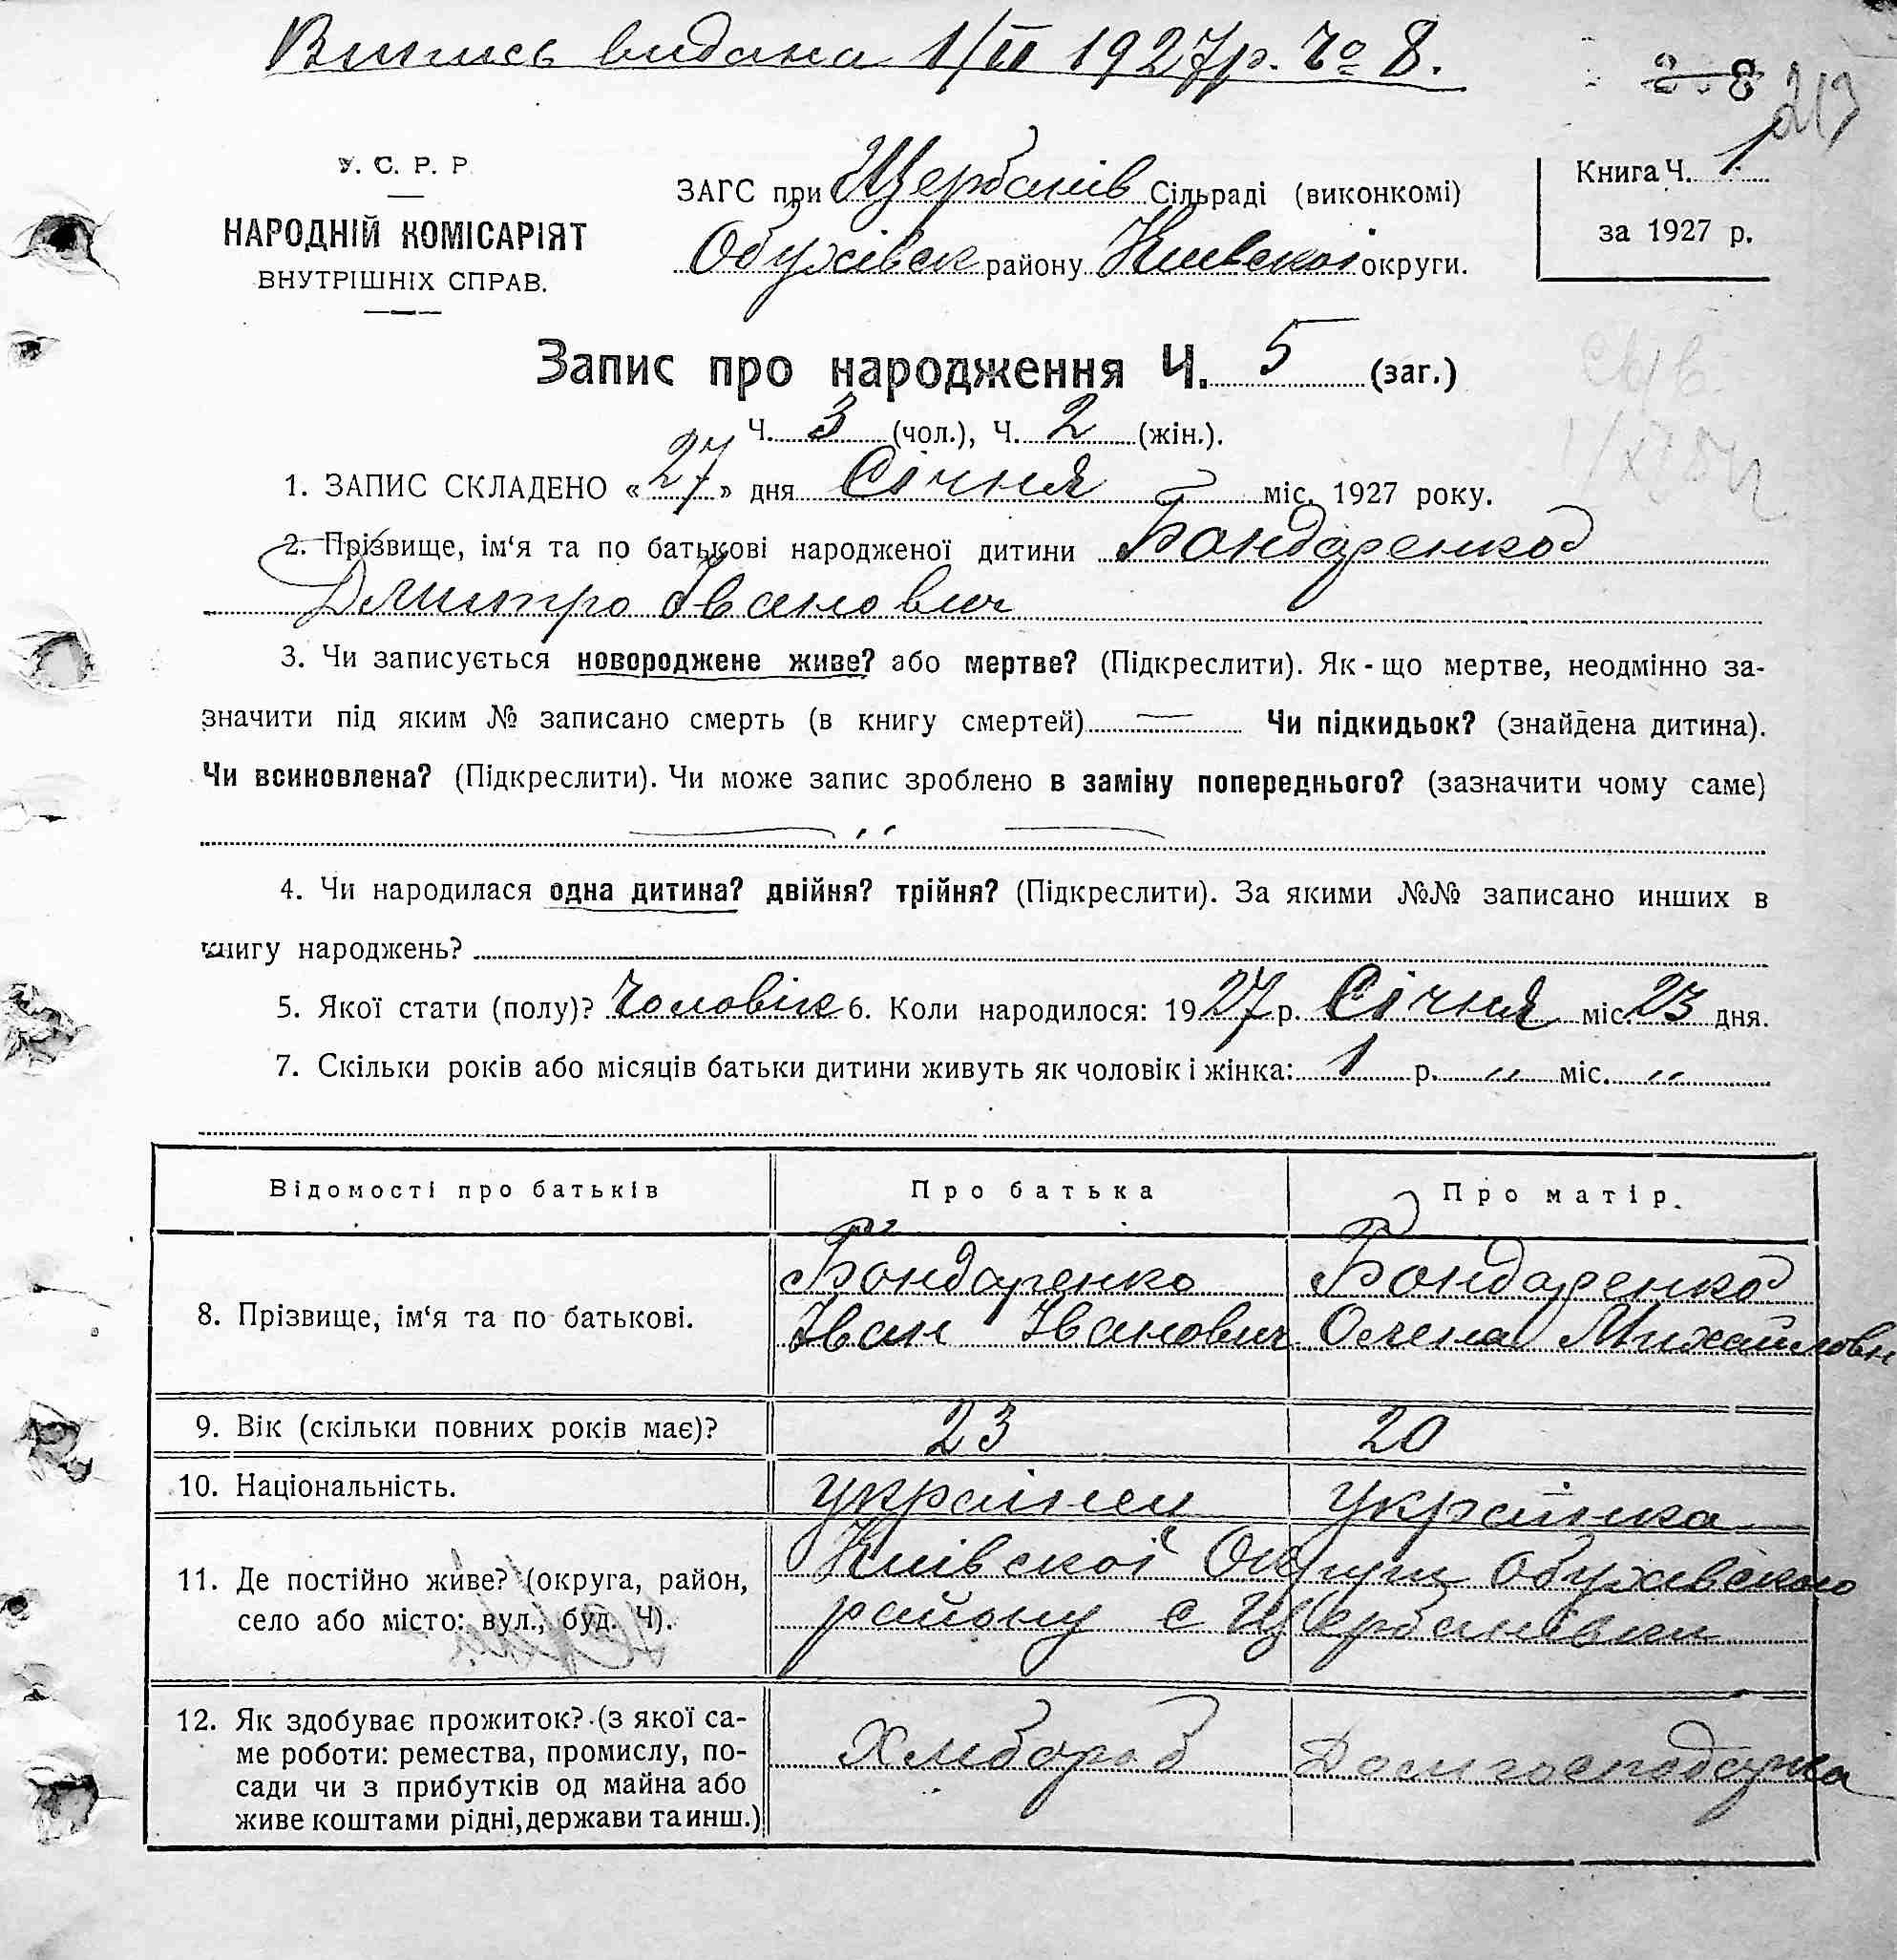 Випись видана 1/II 1927р. Ч<u>о</u> 8.
8 213
У. С. Р. Р.
НАРОДНІЙ КОМІСАРІЯТ
ВНУТРІШНІХ СПРАВ.
ЗАГС при Щербанів Сільраді (виконкомі)
Обухівск району Київскої округи.
Книга Ч. 1
за 1927 р.
Запис про народження Ч. 5 (заг.)
Ч. 3 (чол.), Ч. 2 (жін.).
1. ЗАПИС СКЛАДЕНО «27» дня Січня міс. 1927 року.
2. Прізвище, ім‘я та по батькові народженої дитини Бондаренко
Дмитро Іванович
3. Чи записується новороджене живе? або мертве? (Підкреслити). Як-що мертве, неодмінно за-
значити під яким № записано смерть (в книгу смертей) Чи підкидьок? (знайдена дитина).
Чи всиновлена? (Підкреслити). Чи може запис зроблено в заміну попереднього? (зазначити чому саме)
4. Чи народилася одна дитина? двійня? трійня? (Підкреслити). За якими №№ записано инших в
книгу народжень?
5. Якої стати (полу)? Чоловік 6. Коли народилося: 1927 р. Січня міс. 23 дня.
7. Скільки років або місяців батьки дитини живуть як чоловік і жінка: 1 р. „ міс. „
Відомості про батьків Про батька Про матір.
8. Прізвище, ім‘я та по батькові.
Бондаренко
Іван Іванович
Бондаренко
Олена Михайловн
9. Вік (скільки повних років має)? 23 20
10. Національність. українец українка
11. Де постійно живе? (округа, район,
село або місто: вул., буд. Ч).
Київскої Округи Обухівского
району с Щербанівки
12. Як здобуває прожиток? (з якої са-
ме роботи: ремества, промислу, по-
сади чи з прибутків од майна або
живе коштами рідні, держави та инш.)
Хлібороб Домгосподарка